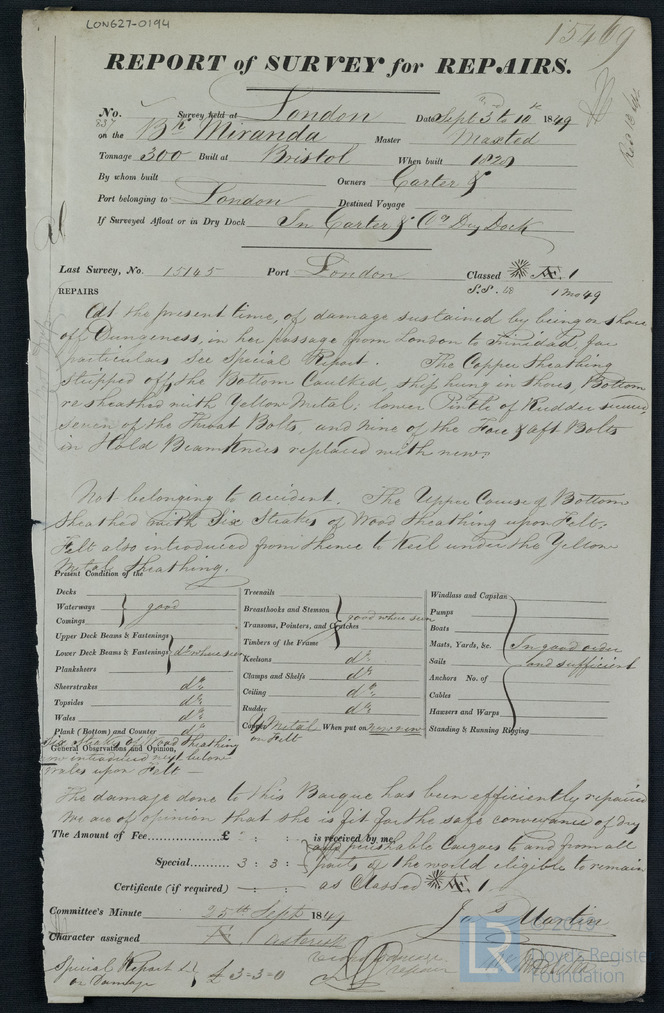 LON627-0194
15469
REPORT of SURVEY for REPAIRS.
No. 837 Survey held at London Date Sept 3d to 10th 1849
on the Bk Miranda Master Maxted
Tonnage 300 Built at Bristol When built 1828
By whom built Owners Carter &
Port belonging to London Destined Voyage
If Surveyed Afloat or in Dry Dock In Carter & Co Dry Dock
Last Survey, No. 15145 Port London Classed Æ 1
S.S. 1 mo 49
REPAIRS
At the present time, of damage sustained by being on shore
off Dungeness, in her passage from London to Trinidad, for
particulars see Special Report. The Copper sheathing
stripped off, the Bottom Caulked, ship hung in shores, Bottom
resheathed with Yellow Metal; lower Pintle of Rudder secured,
seven of the Throat Bolts, and nine of the Fore & aft Bolts
in Hold Beam Knees replaced with new.
Not belonging to accident. The Upper Course of Bottom
sheathed with Six Strakes of Wood sheathing upon Felt;
Felt also introduced from thence to Keel under the Yellow
Metal sheathing.
Present Condition of the
Decks
Waterways good
Comings
Upper Deck Beams & Fastenings
Lower Deck Beams & Fastenings do where seen
Planksheers
Sheerstrakes do
Topsides do
Wales do
Plank (Bottom) and Counter do
Treenails
Breasthooks and Stemson good where seen
Transoms, Pointers, and Crutches
Timbers of the Frame
Keelsons do
Clamps and Shelfs do
Ceiling do
Rudder do
Copper Y Metal When put on now new
on Felt
Windlass and Capstan
Pumps
Boats
Masts, Yards, &c. In good order
Sails and sufficient
Anchors No. of
Cables
Hawsers and Warps
Standing & Running Rigging
Six Strakes of Wood Sheathing
General Observations and Opinion,
now introduced next below
Wales upon Felt —
The damage done to this Barque has been efficiently repaired
We are of opinion that she is fit for the safe conveyance of dry
The Amount of Fee £ : : is received by me,
and perishable Cargoes to and from all
Special 3 : 3 : parts of the world eligible to remain
Certificate (if required) — : : as Classed Æ 1.
Committee's Minute 25th Sept 1849
Jas Martin
Character assigned Æ 1 asterisk
Special Report
on Damage £ 3-3-0
LR Lloyd's Register
Foundation